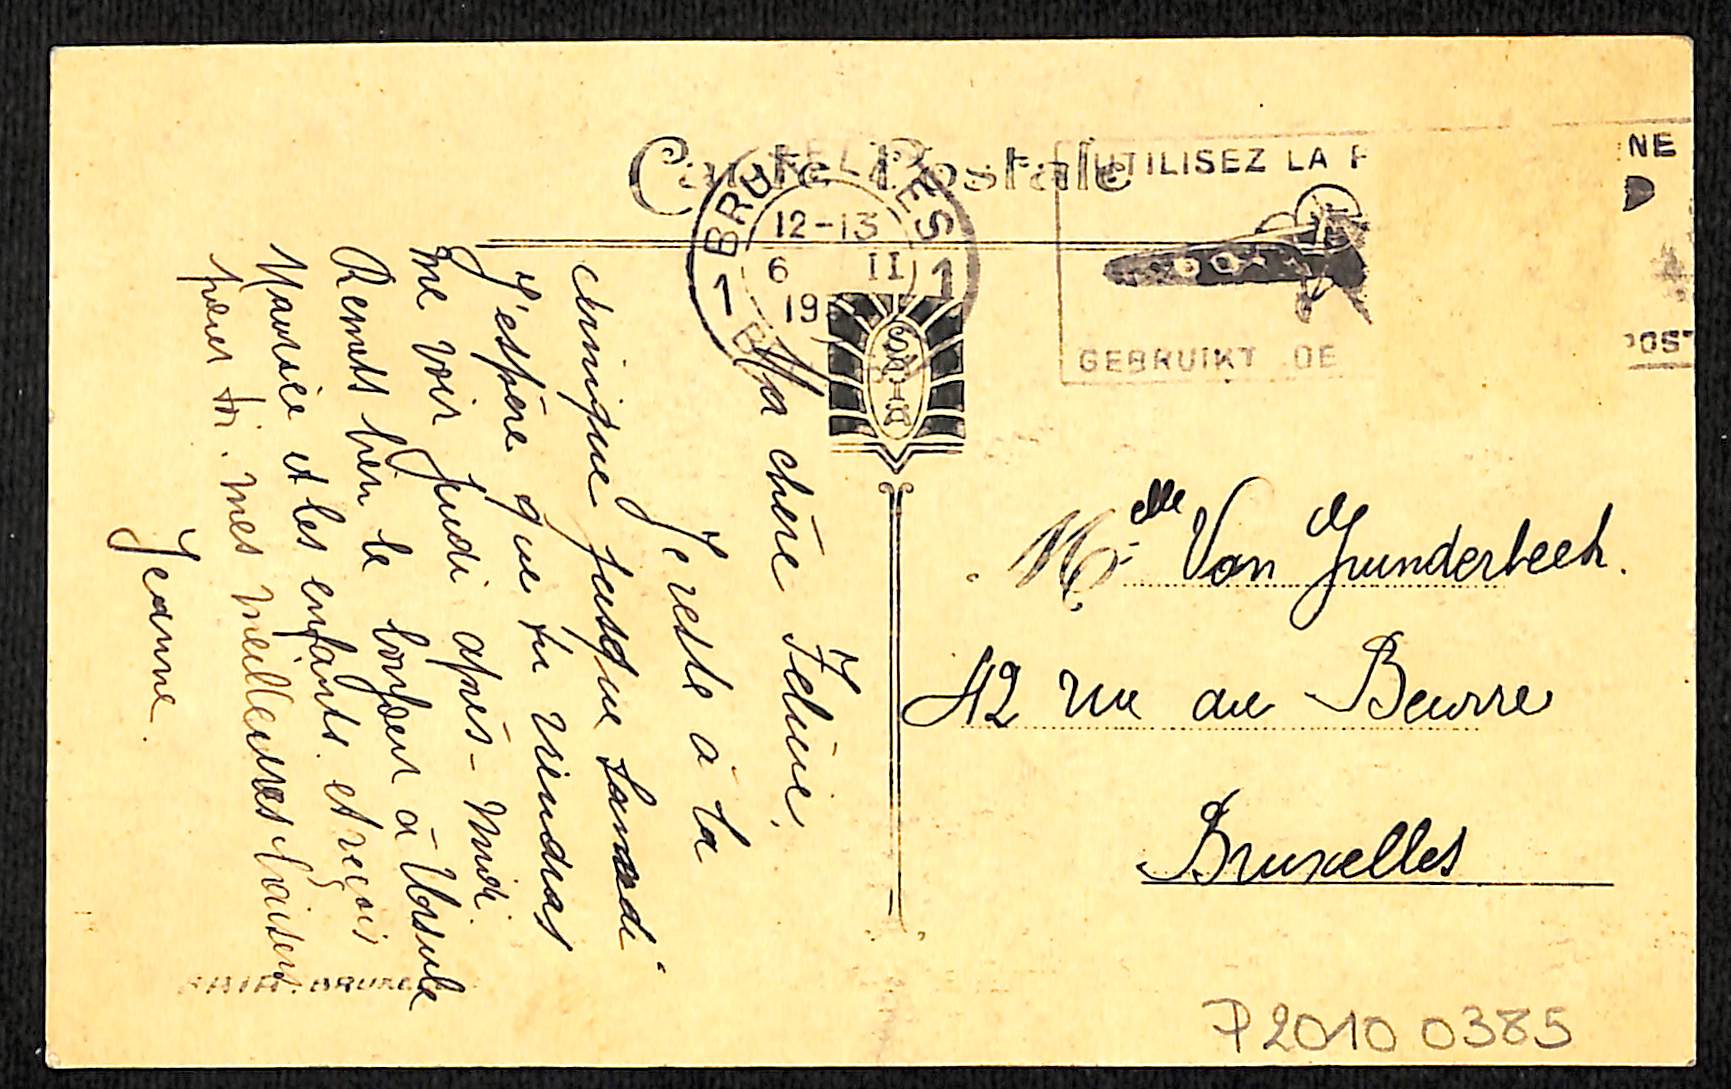 Carte Postale
BRUXELLES
12-13
6 II
19
1 1
UTILISEZ LA P
NE
GEBRUIKT DE
POST
SAIA
Ma chère Féline,
Je reste à la
clinique jusque samedi
J'espère que tu viendras
me voir jeudi après-midi.
Remets bien le bonjour à Ursule
Maurice et les enfants et reçois
pour toi mes meilleures baisers
Jeanne.
Melle Van Gunderbeek.
42 rue au Beurre
Bruxelles
SAIA. BRUXEL
P2010 0385